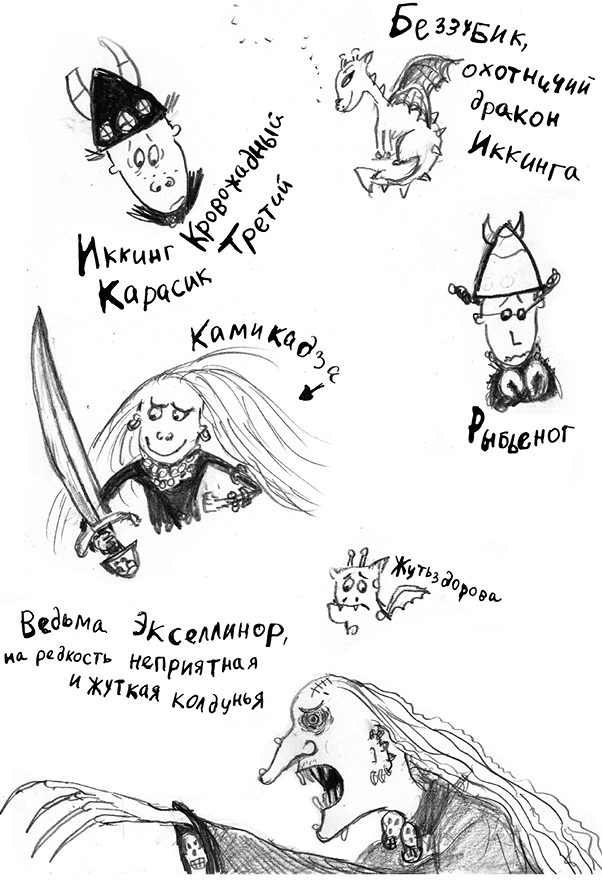 Беззубик,
охотничий
дракон
Иккинга
Иккинг Кровожадный
Карасик Третий
Камикадза
Рыбьеног
Жутьздорова
Ведьма Экселлинор,
на редкость неприятная
и жуткая колдунья